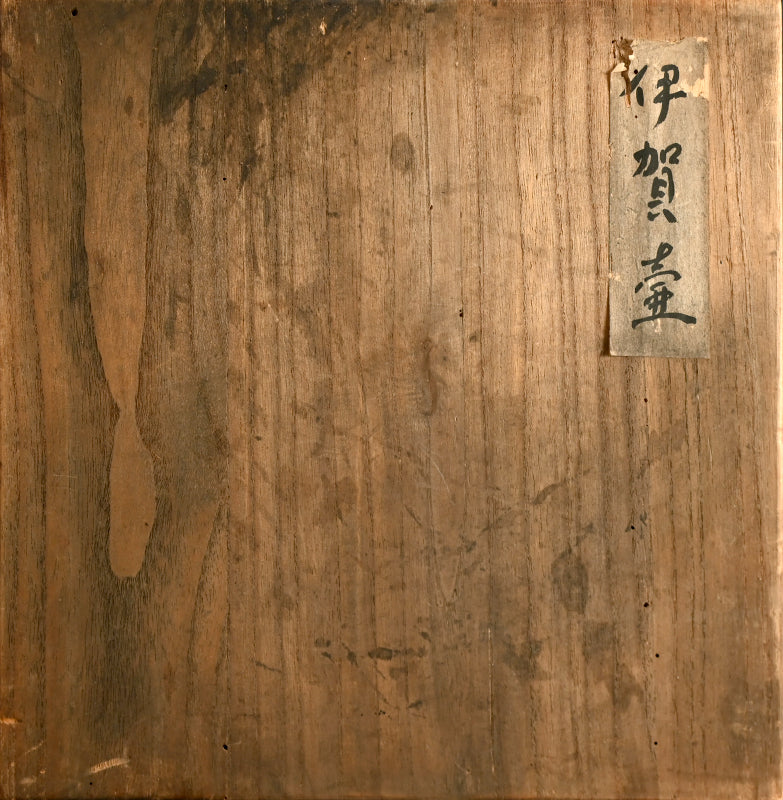 伊賀壷